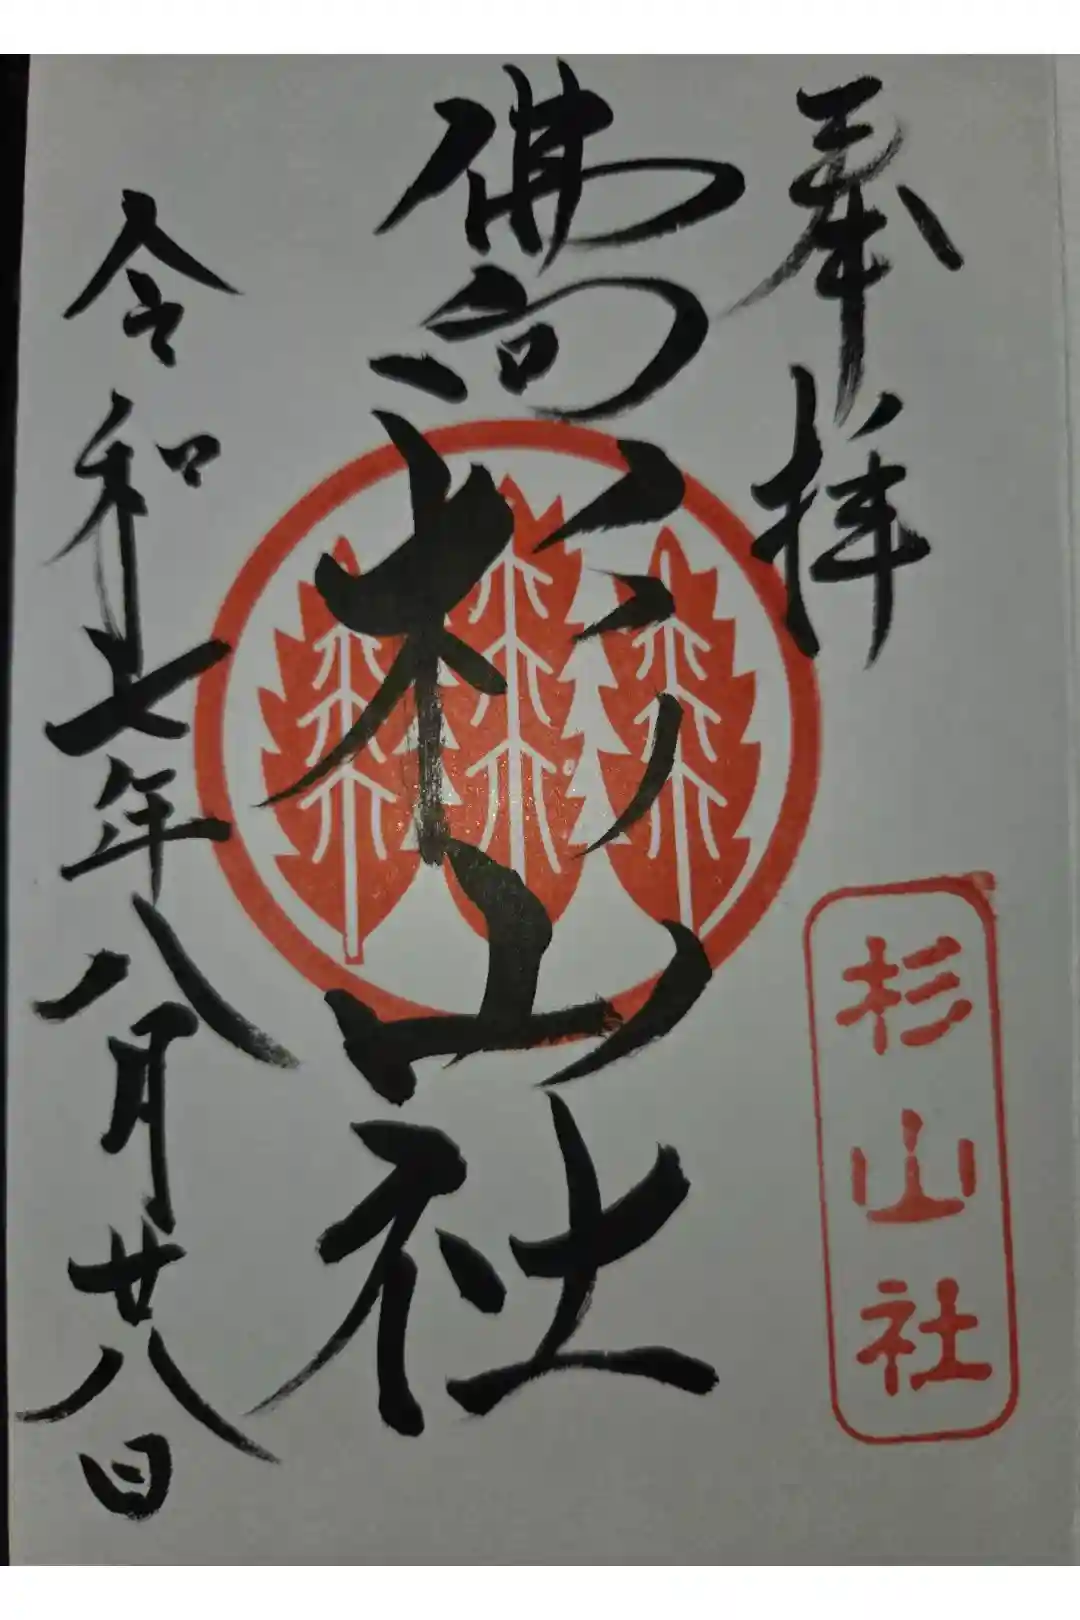 奉拝
佛向杉山社
令和七年八月廿八日
杉山社